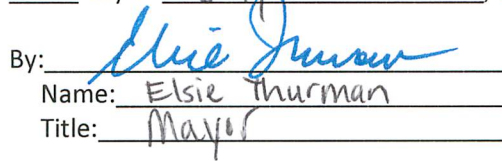 By: Elsie Thurman
Name: Elsie Thurman
Title: Mayor